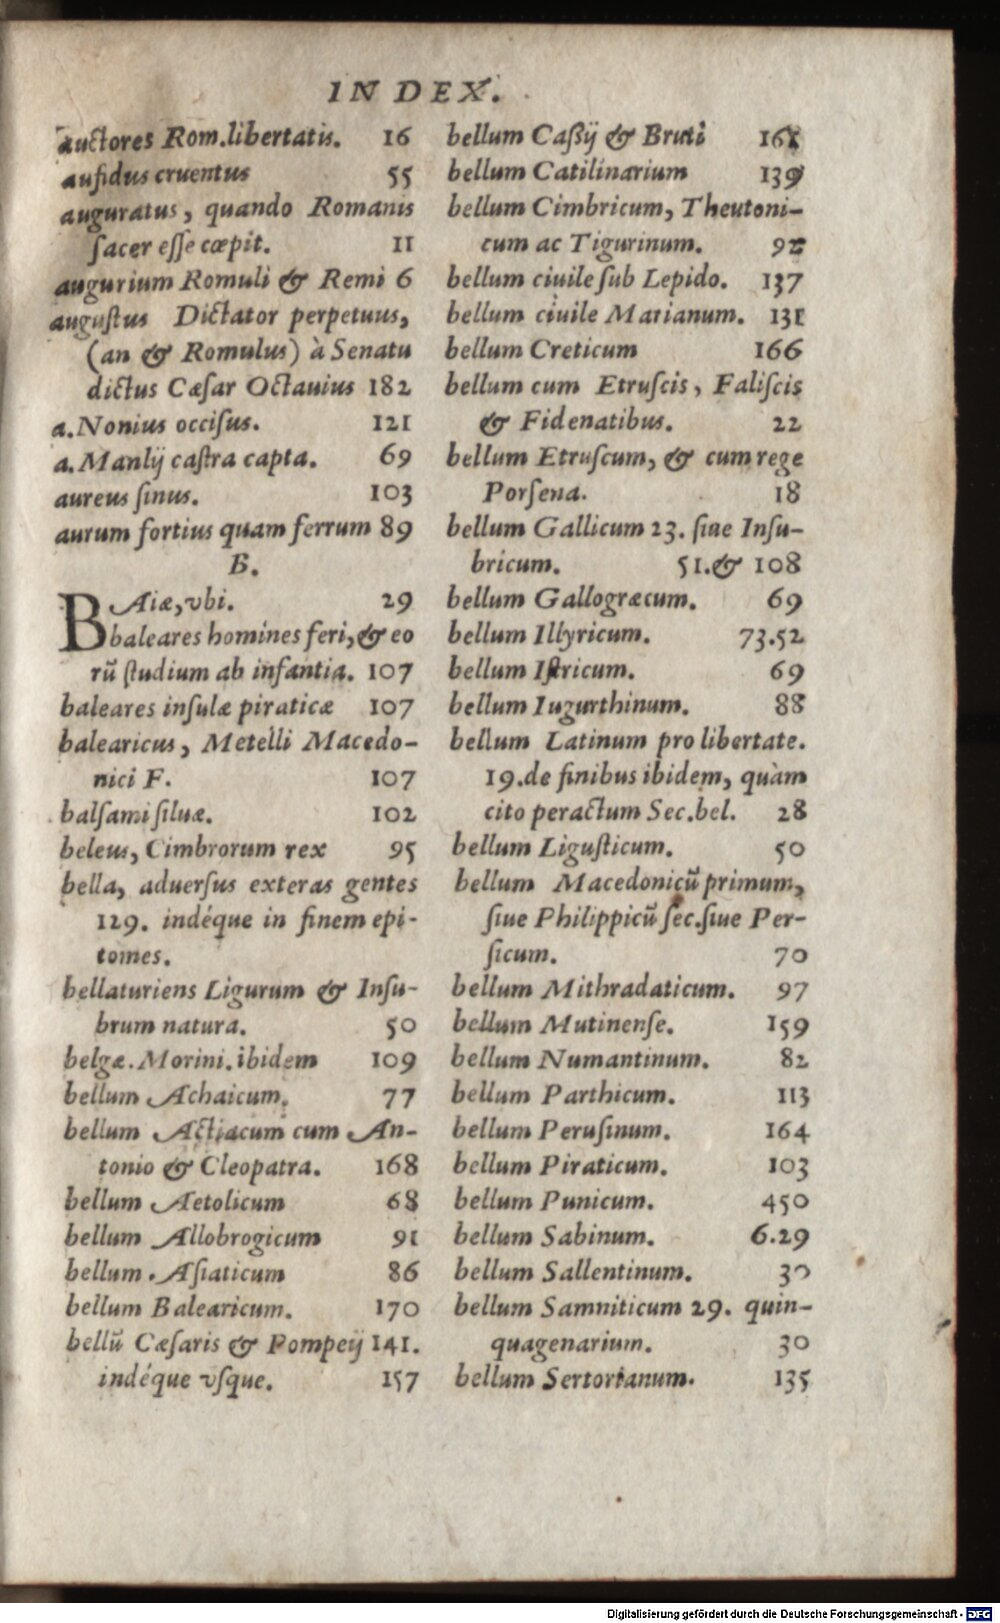 INDEX.
auctores Rom.libertatis. 16
aufidus cruentus 55
auguratus, quando Romanis
ſacer eſſe cœpit. 11
augurium Romuli & Remi 6
auguſtus Dictator perpetuus,
(an & Romulus) à Senatu
dictus Cæſar Octauius 182
a. Nonius occiſus. 121
a. Manlij caſtra capta. 69
aureus ſinus. 103
aurum fortius quam ferrum 89
B.
BAiæ, vbi. 29
baleares homines feri, & eo
rū ſtudium ab infantia. 107
baleares inſulæ piraticæ 107
balearicus, Metelli Macedo-
nici F. 107
balſami ſiluæ. 102
beleus, Cimbrorum rex 95
bella, aduerſus exteras gentes
129. indéque in finem epi-
tomes.
bellaturiens Ligurum & Inſu-
brum natura. 50
belgæ. Morini. ibidem 109
bellum Achaicum. 77
bellum Actiacum cum An-
tonio & Cleopatra. 168
bellum Aetolicum 68
bellum Allobrogicum 91
bellum Aſiaticum 86
bellum Balearicum. 170
bellū Cæſaris & Pompeij 141.
indéque vſque. 157
bellum Caßij & Bruti 161
bellum Catilinarium 139
bellum Cimbricum, Theutoni-
cum ac Tigurinum. 92
bellum ciuile ſub Lepido. 137
bellum ciuile Marianum. 131
bellum Creticum 166
bellum cum Etruſcis, Faliſcis
& Fidenatibus. 22
bellum Etruſcum, & cum rege
Porſena. 18
bellum Gallicum 23. ſiue Inſu-
bricum. 51.& 108
bellum Gallogræcum. 69
bellum Illyricum. 73.52
bellum Iſtricum. 69
bellum Iugurthinum. 88
bellum Latinum pro libertate.
19. de finibus ibidem, quàm
cito peractum Sec.bel. 28
bellum Liguſticum. 50
bellum Macedonicū primum,
ſiue Philippicū ſec. ſiue Per-
ſicum. 70
bellum Mithradaticum. 97
bellum Mutinenſe. 159
bellum Numantinum. 82
bellum Parthicum. 113
bellum Peruſinum. 164
bellum Piraticum. 103
bellum Punicum. 450
bellum Sabinum. 6.29
bellum Sallentinum. 30
bellum Samniticum 29. quin-
quagenarium. 30
bellum Sertorianum. 135
Digitalisierung gefördert durch die Deutsche Forschungsgemeinschaft - DFG